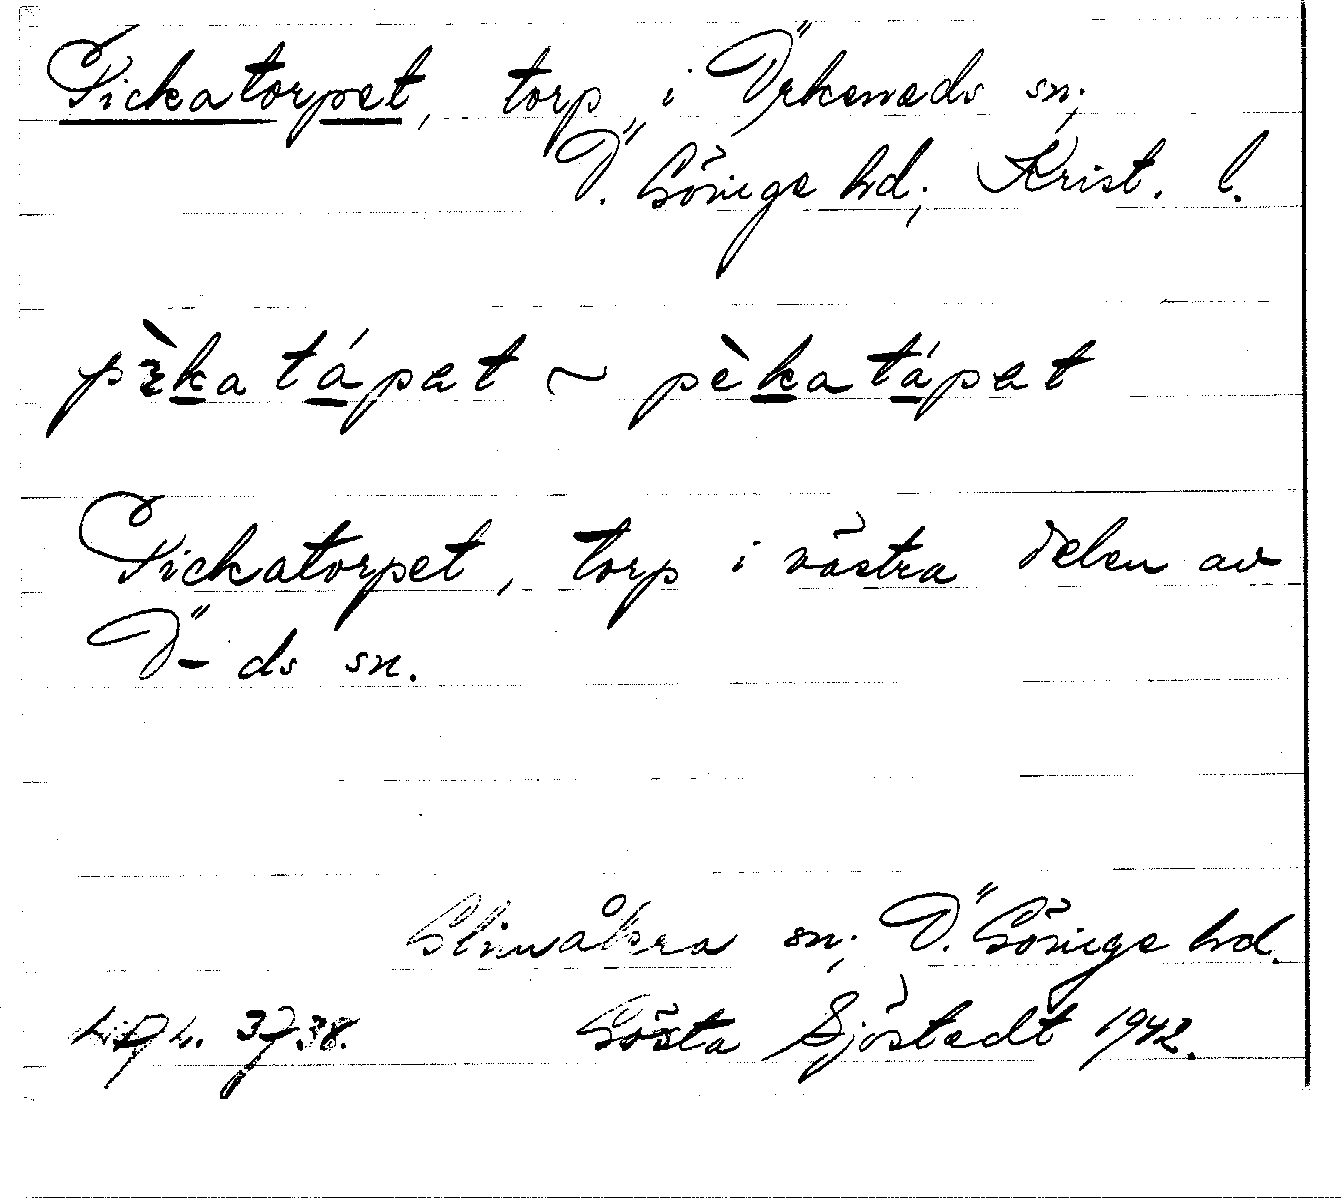 Pickatorpet, torp i Örkeneds sn;
Ö. Göinge hd; Krist. l.
pɛ̀ka tápat ~ pèka tápat
Pickatorpet, torp i västra delen av
Ö-ds sn.
Glimåkra sn; Ö. Göinge hd.
3738. Gösta Sjöstedt 1942.